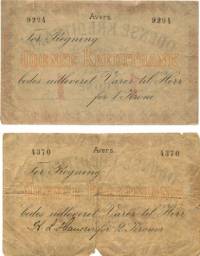 Avers.
9294 9294
For Regning
ODENSE KREDITBANK
bedes udleveret Varer til Herr
for 1 Krone
Avers.
4370 4370
For Regning
ODENSE KREDITBANK
bedes udleveret Varer til Herr
for 2 Kroner